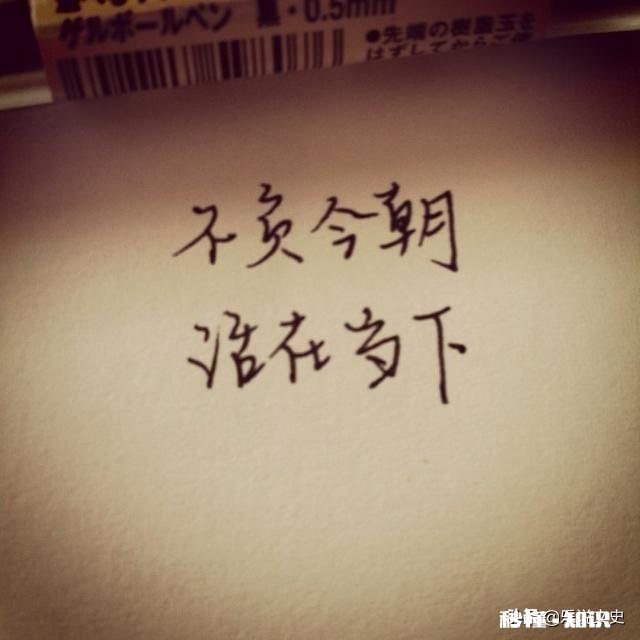 ゲルボールペン 黒・0.5mm
●先端の樹脂玉を
はずしてからご使
不负今朝
活在当下
秒懂·知识